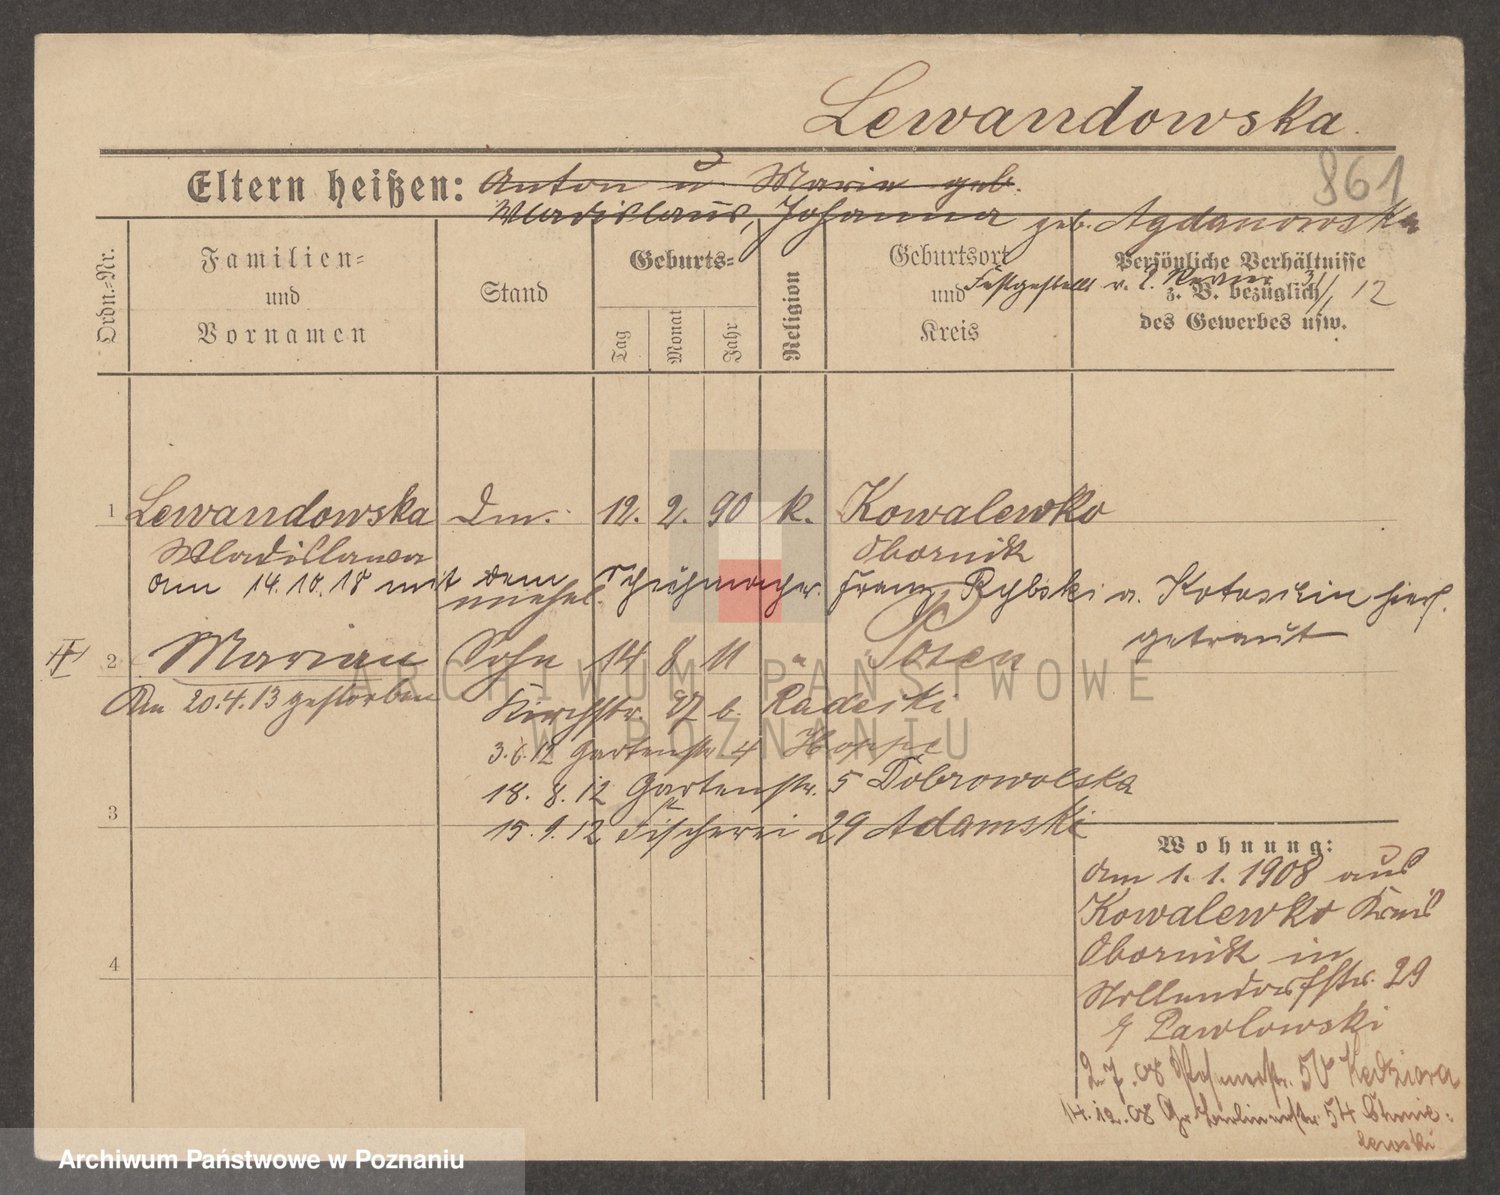 Lewandowska
861
Eltern heißen: Anton u Marie geb.
Wladislaus, Johanna geb. Agdanowska
Ordn.-Nr.
Familien-
und
Vornamen
Stand
Geburts-
Tag
Monat
Jahr
Religion
Geburtsort
und
Kreis
Persönliche Verhältnisse
z. B. bezüglich
des Gewerbes usw.
Festgestellt v. 12
1 Lewandowska Dm. 12. 2. 90 k. Kowalewko
Wladislawa Obornik
am 14.10.18 mit dem Schuhmacher Franz Rybski a. Kotoschin hier
getraut
unehel.
2 Marian Sohn 14 8 11 " Posen
Am 20.4.13 gestorben
Kirchstr. 27 b. Radecki
3.6.12 Gartenstr 4 Hoppe
18. 8. 12 Gartenstr. 5 Dobrowolska
15. 9. 12 Fischerei 29 Adamski
3
4
Wohnung:
am 1. 1. 1908 aus
Kowalewko Kreis
Obornik in
Nollendorfstr. 29
Pawlowski
2.7.08 50 Kedziora
14.12.08 Gr. Berlinerstr. 54 Chmie-
lewski
ARCHIWUM PAŃSTWOWE
W POZNANIU
Archiwum Państwowe w Poznaniu